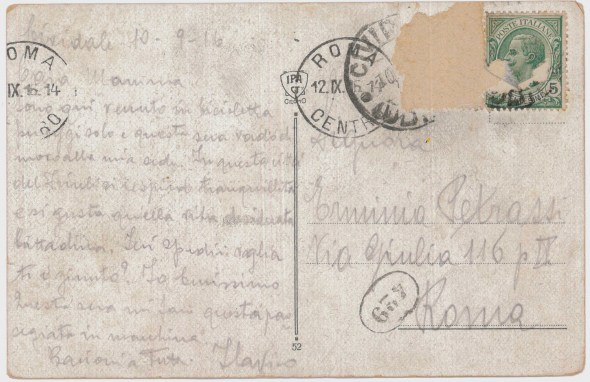 Cividale 10-9-16
Cara Mamma
sono qui venuto in bicicletta
e questa sera vado di
alla mia sede. In questa città
del Friuli si respira tranquillità
e si gusta quella vita desiderata
cittadina. Ieri spedii vaglia
ti è giunto? Io benissimo
Questa sera mi farò questa pas
segiata in macchina
Bacioni a Tutti Flavio
ROMA
IX.16.14
ROMA
12.IX.16.14
CENTRO
CIVID
UDI
POSTE ITALIANE
5
IPA
CT
52
Signora
Erminia Petrassi
Via Giulia 116 p II
Roma
429